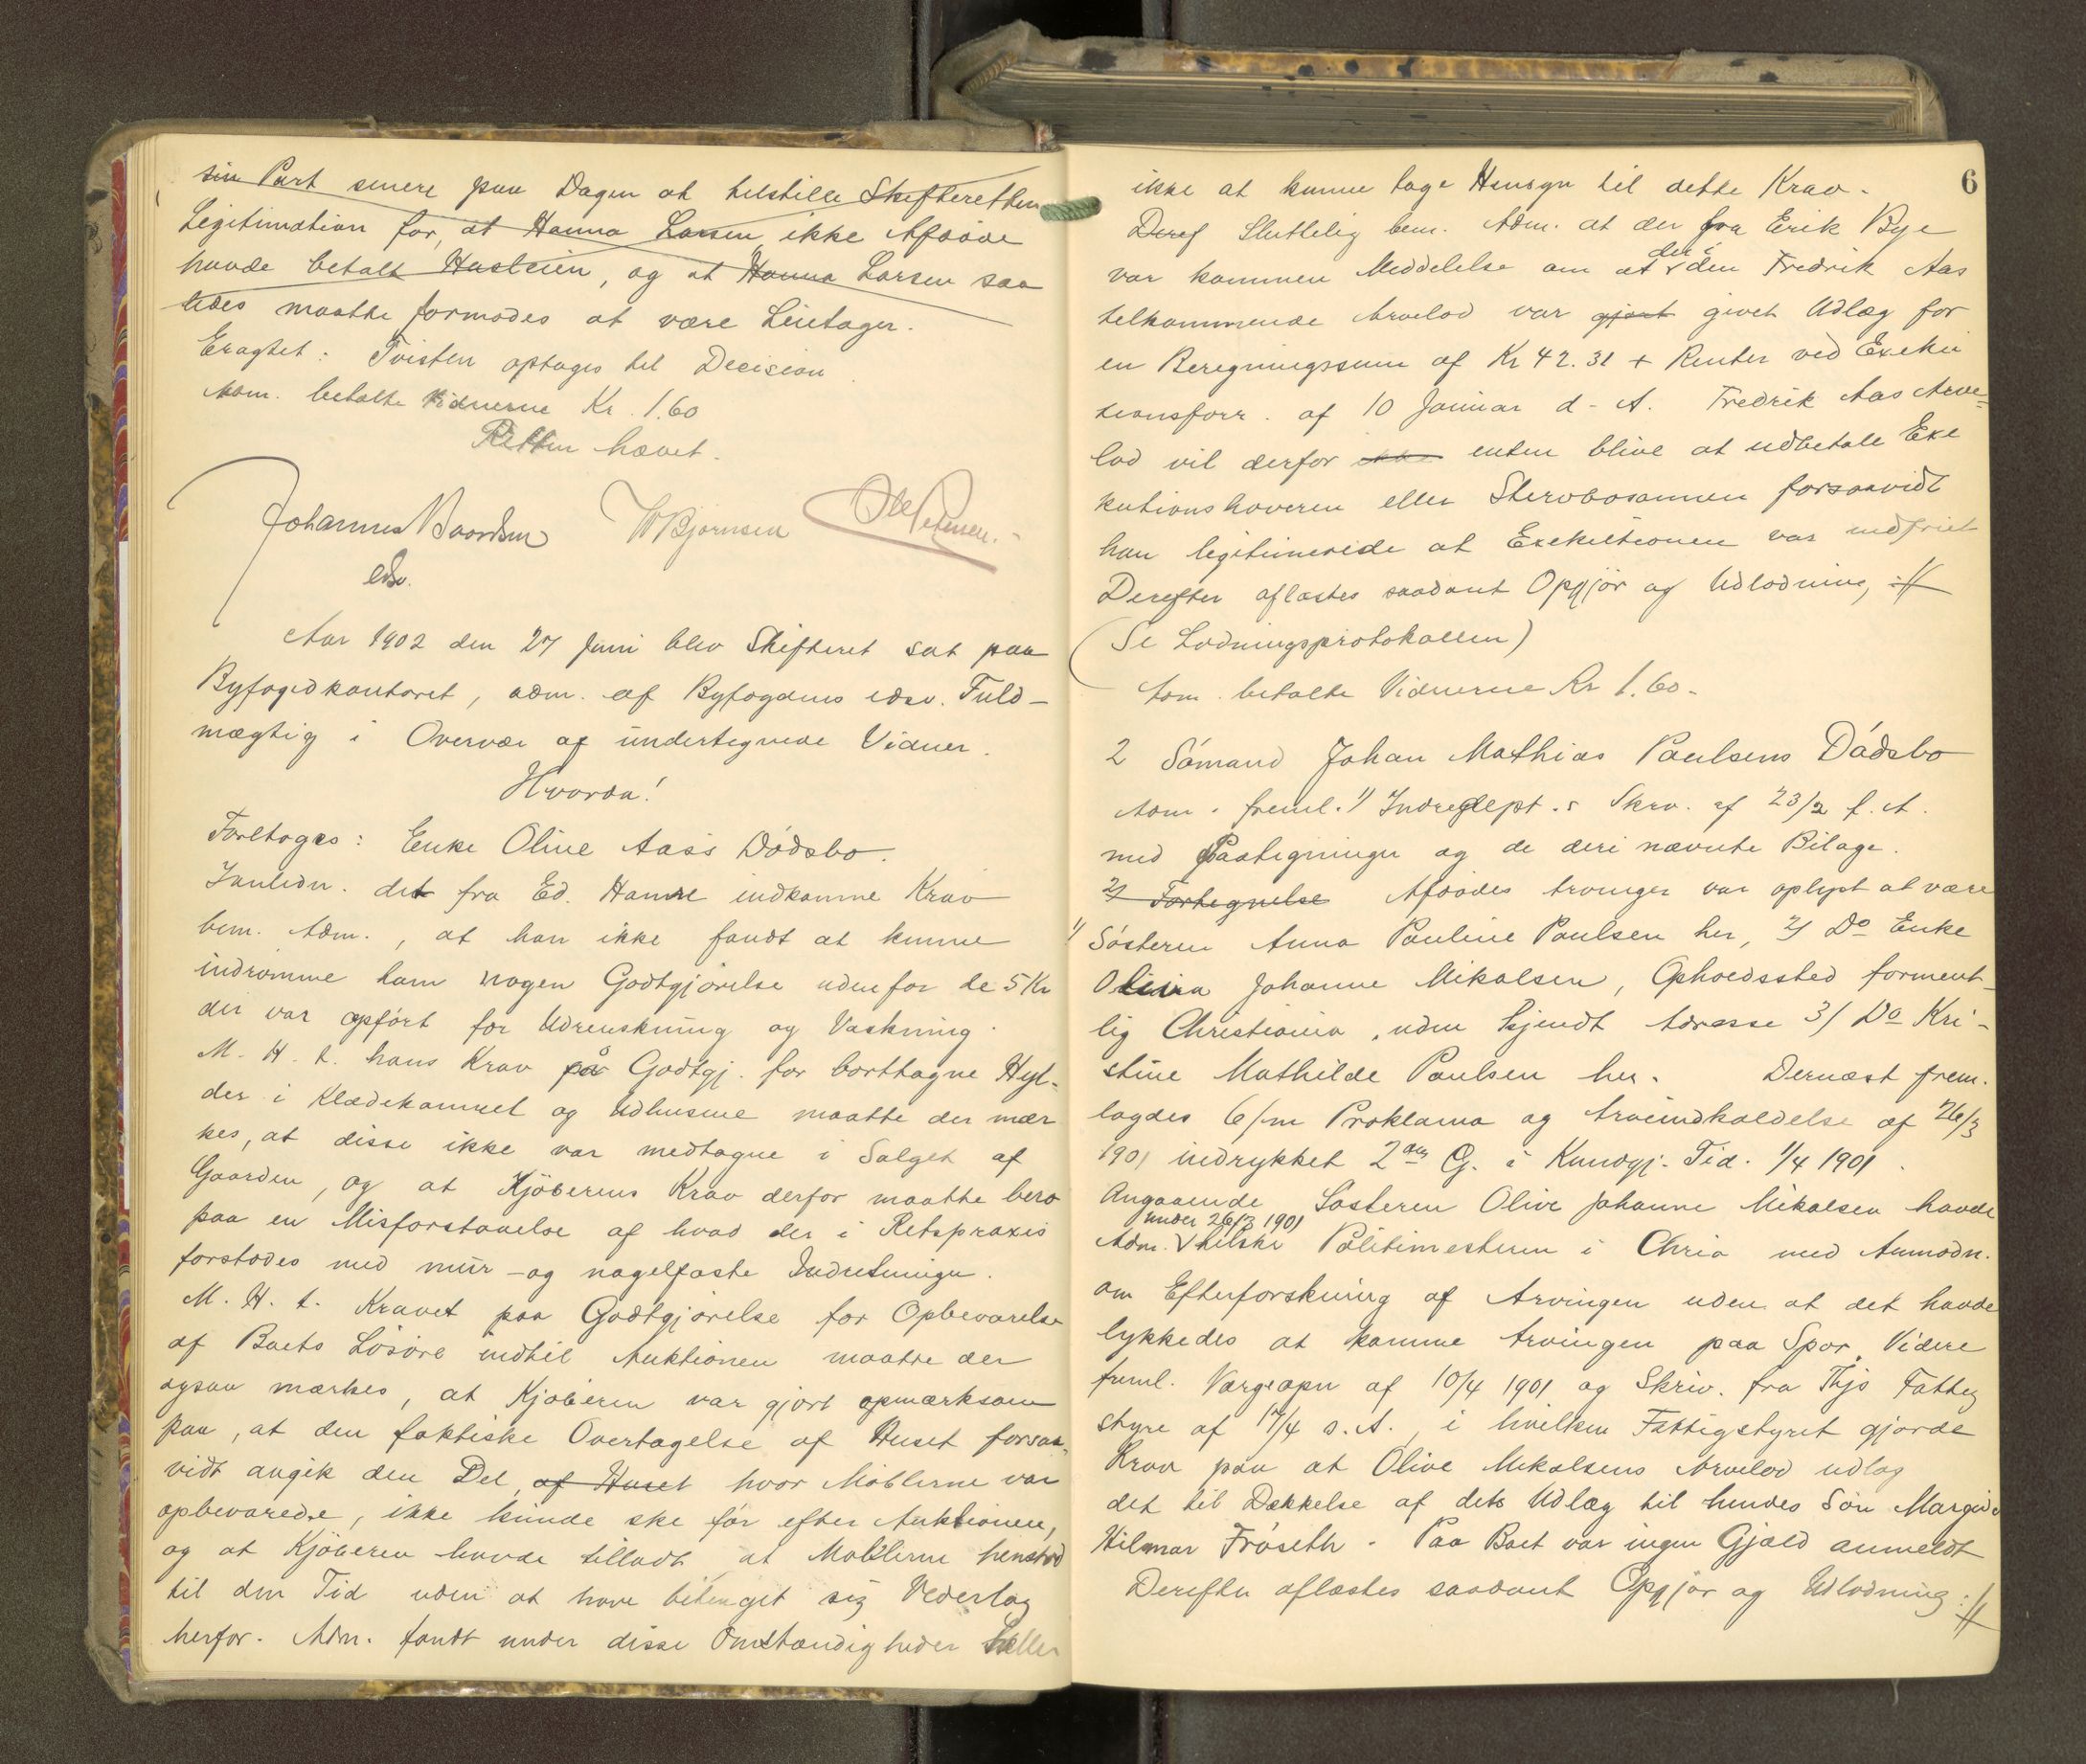 sin Part senere paa Dagen at tilstille Skifteretten
Legitimation for, at Hanna Larsen ikke Afdøde
havde betalt Husleien, og at Hanna Larsen saa
ledes maatte formodes at være Leietager.
Eragtet: Tvisten optages til Decision.
Adm. betalte Vidnerne Kr. 1.60
Retten hævet.
Johannes W Bjørnsen Ole Petersen.
edsv.
Aar 1902 den 27 Juni blev Skifteret sat paa
Byfogedkontoret, adm. af Byfogdens edsv. Fuld-
mægtig i Overvær af undertegnede Vidner.
Hvorda!
Foretoges: Enke Oline Aas's Dödsbo.
I anledn. det fra Ed. Hamre indkomne Krav
bem. Adm., at han ikke fandt at kunne
indrømme ham nogen Godtgjørelse udenfor de 5 Kr
der var opført for Udrenskning og Vaskning.
M. H. t. hans Krav på Godtgj. for borttagne Hyl-
der i Klædekammet og Udhusene maatte der mær
kes, at disse ikke var medtagne i Salget af
Gaarden, og at Kjøberens Krav derfor maatte bero
paa en Misforstaaelse af hvad der i Retspraxis
forstodes med mur- og nagelfaste Indretninger.
M. H. t. Kravet paa Godtgjørelse for Opbevarelse
af Boets Løsøre indtil Auktionen maatte der
ogsaa mærkes, at Kjøberen var gjort opmærksom
paa, at den faktiske Overtagelse af Huset forsaa-
vidt angik den Del, af Huset hvor Møblerne var
opbevarede, ikke kunde ske før efter Auktionen,
og at Kjøberen havde tilladt at Møblerne henstod
til den Tid uden at have betinget sig Vederlag
herfor. Adm. fandt under disse Omstændigheder heller
6
ikke at kunne tage Hensyn til dette Krav.
Deref Sluttelig bem. Adm. at der fra Erik Bye
var kommen Meddelelse om at der i den Fredrik Aas
tilkommende Arvelod var gjort givet Udlæg for
en Beregningssum af Kr 42.31 + Renter ved Exeku
tionsforr. af 10 Januar d. A. Fredrik Aas Arve=
lod vil derfor ikke enten blive at udbetale Exe
kutionshaveren eller Stervbosønnen forsaavidt
han legitimerede at Exekutionen var indfriet
Derefter aflæstes saadant Opgjør og Udlodning, ://
(Se Lodningsprotokollen)
Adm. betalte Vidnerne Kr 1.60.
2 Sömand Johan Mathias Paulsens Dödsbo
Adm. freml. 1) Indredept.s Skrv. af 23/2 f. A.
med Paategninger og de deri nævnte Bilage.
2) Fortegnelse Afdødes Arvinger var oplyst at være
1) Søsteren Anna Pauline Paulsen her, 2) Do Enke
Olivia Johanne Mikalsen, Opholdssted forment-
lig Christiania, uden kjendt Adresse 3) Do Kri-
stine Mathilde Paulsen her. Dernæst frem.
lagdes 6/m Proklama og Arveindkaldelse af 26/3
1901 indrykket 2den G. i Kundgj. Tid. 1/4 1901.
Angaaende Søsteren Olive Johanne Mikalsen havde
under 26/3 1901
Adm. tilskr Politimesteren i Chria med Anmodn.
om Efterforskning af Arvingen uden at det havde
lykkedes at komme Arvingen paa Spor. Videre
freml. Værgeopn af 10/4 1901 og Skriv. fra Thjs Fattig
styre af 17/4 s. A., i hvilken Fattigstyret gjorde
Krav paa at Olive Mikalsens Arvelod udlag
det til Dækkelse af dets Udlæg til hendes Søn Margido
Hilmar Frøseth. Paa Boet var ingen Gjæld anmeldt
Derefter aflæstes saadant Opgjør og Udlodning ://